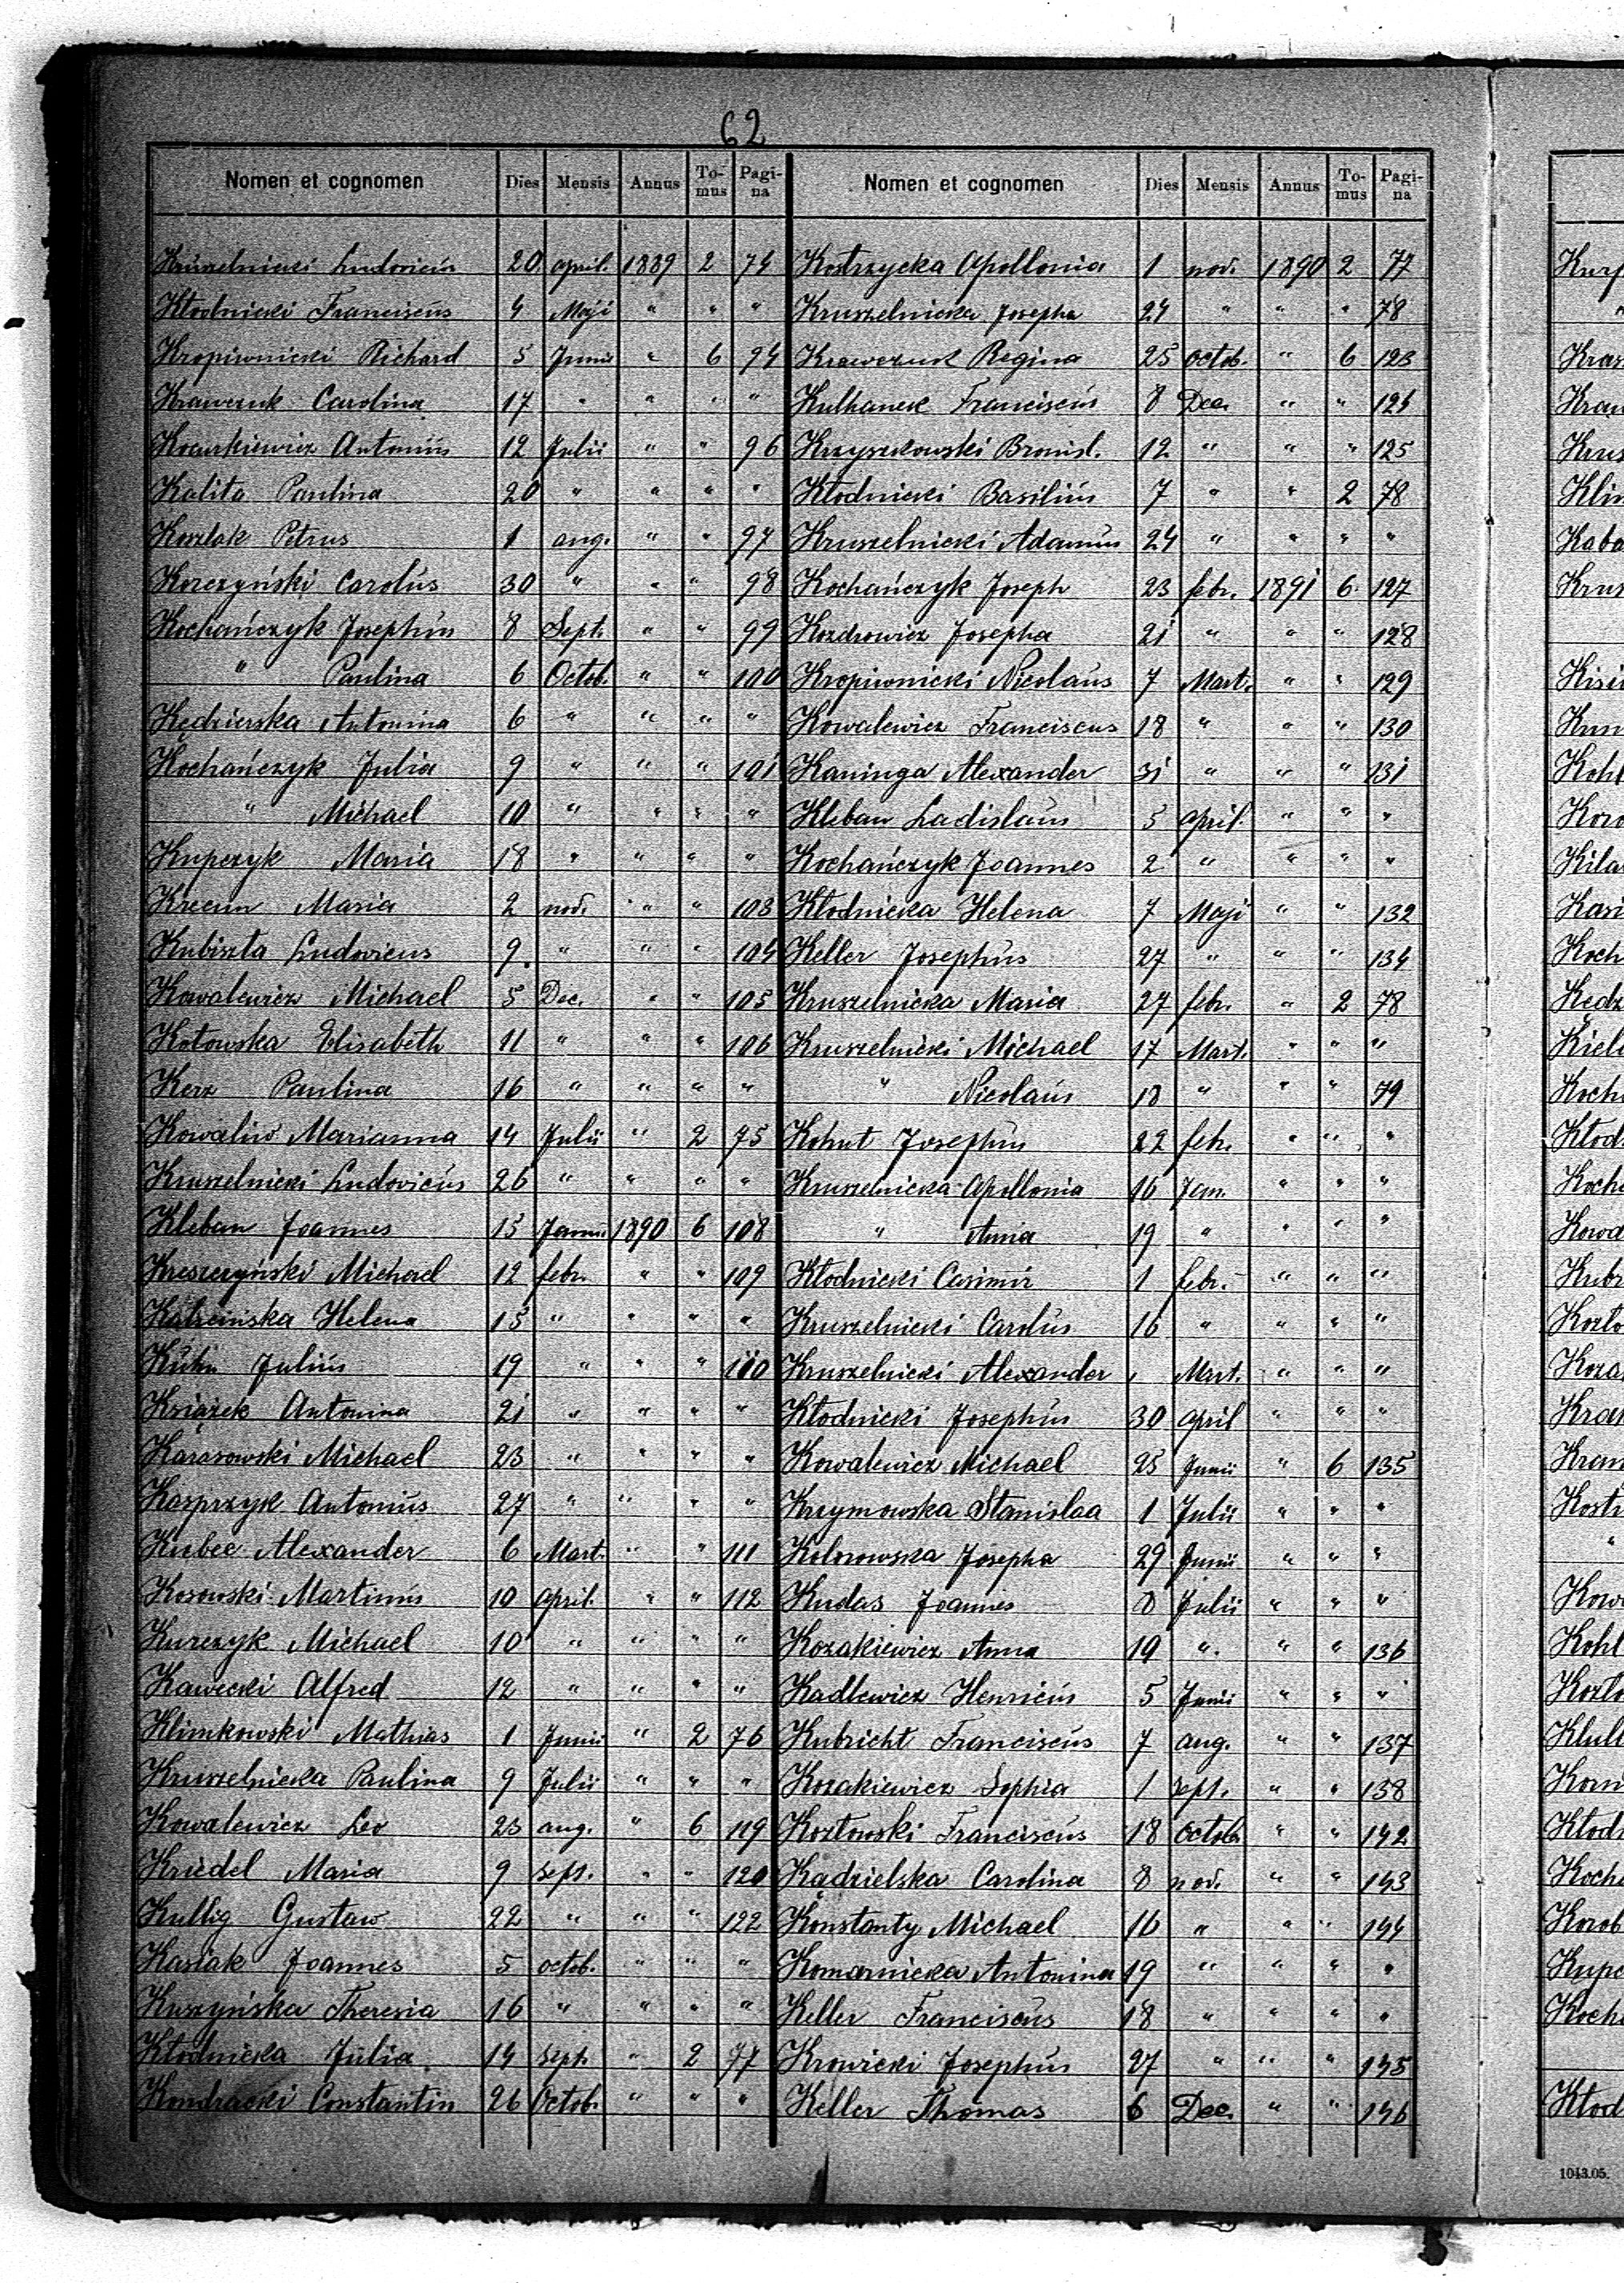 62
Nomen et cognomen Dies Mensis Annus To-mus Pagi-na
Kruszelnicki Ludovicus 20 april. 1889 2 74
Kłodnicki Franciscus 4 Maji " " "
Kropiwnicki Richard 5 Junii " 6 94
Krawczuk Carolina 17 " " " "
Kocurkiewicz Antonius 12 Julii " " 96
Kalita Paulina 20 " " " "
Koszlak Petrus 1 aug. " " 97
Korczyński Carolus 30 " " " 98
Kochańczyk Josephus 8 Sept. " " 99
" Paulina 6 Octob. " " 100
Kędzierska Antonina 6 " " " "
Kochańczyk Julia 9 " " " 101
" Michael 10 " " " "
Kupczyk Maria 18 " " " "
Krecun Maria 2 nov. " " 103
Kubiszta Ludovicus 9 " " " 104
Kowalewicz Michael 5 Dec. " " 105
Kotowska Elisabeth 11 " " " 106
Kerz Paulina 16 " " " "
Kowaliw Marianna 14 Julii " 2 75
Kruszelnicki Ludovicus 26 " " " "
Kleban Joannes 15 Januii 1890 6 108
Kreszczyński Michael 12 febr. " " 109
Kalscińska Helena 15 " " " "
Kuhn Julius 19 " " " 110
Książek Antonina 21 " " " "
Karasowski Michael 23 " " " "
Kasprzyk Antonius 27 " " " "
Kubec Alexander 6 Mart. " " 111
Kosowski Martinus 10 april. " " 112
Kurczyk Michael 10 " " " "
Kawecki Alfred 12 " " " "
Klimkowski Mathias 1 Junii " 2 76
Kruszelnicka Paulina 9 Julii " " "
Kowalewicz Leo 23 aug. " 6 119
Kriedel Maria 9 sept. " " 120
Kullig Gustaw 22 " " " 122
Kasiak Joannes 5 octob. " " "
Kuszyńska Theresia 16 " " " "
Kłodnicka Julia 14 Sept. " 2 77
Kondracki Constantin 26 Octob. " " "
Nomen et cognomen Dies Mensis Annus To-mus Pagi-na
Kostrzycka Apollonia 1 nov. 1890 2 77
Kruszelnicka Josepha 24 " " " 78
Krawczuk Regina 25 octob. " 6 123
Kulhanek Franciscus 8 Dec. " " 124
Krzyszkowski Bronisl. 12 " " " 125
Kłodnicki Basilius 7 " " 2 78
Kruszelnicki Adamus 24 " " " "
Kochańczyk Joseph 23 febr. 1891 6 127
Kozdrowicz Josepha 21 " " " 128
Kropiwnicki Nicolaus 7 Mart. " " 129
Kowalewicz Franciscus 18 " " " 130
Kaninga Alexander 31 " " " 131
Kleban Ladislaus 5 april. " " "
Kochańczyk Joannes 2 " " " "
Kłodnicka Helena 7 Maji " " 132
Keller Josephus 27 " " " 134
Kruszelnicka Maria 27 febr. " 2 78
Kruszelnicki Michael 17 Mart. " " "
" Nicolaus 18 " " " 79
Kohut Josephus 22 febr. " " "
Kruszelnicka Apollonia 16 Jan. " " "
" Anna 19 " " " "
Kłodnicki Casimir 1 febr. " " "
Kruszelnicki Carolus 16 " " " "
Kruszelnicki Alexander 1 Mart. " " "
Kłodnicki Josephus 30 april " " "
Kowalewicz Michael 25 Junii " 6 135
Krzymowska Stanislaa 1 Julii " " "
Kolnowska Josepha 29 Junii " " "
Kudas Joannes 8 Julii " " "
Kozakiewicz Anna 19 " " " 136
Kadlewicz Henricus 5 Junii " " "
Kubricht Franciscus 7 aug. " " 137
Kozakiewicz Sophia 1 sept. " " 138
Kozłowski Franciscus 18 octob. " " 142
Kądzielska Carolina 8 nov. " " 143
Konstanty Michael 16 " " " 144
Komarnicka Antonina 19 " " " "
Keller Franciscus 18 " " " "
Krowicki Josephus 27 " " " 145
Keller Thomas 6 Dec. " " 146
1043.05.